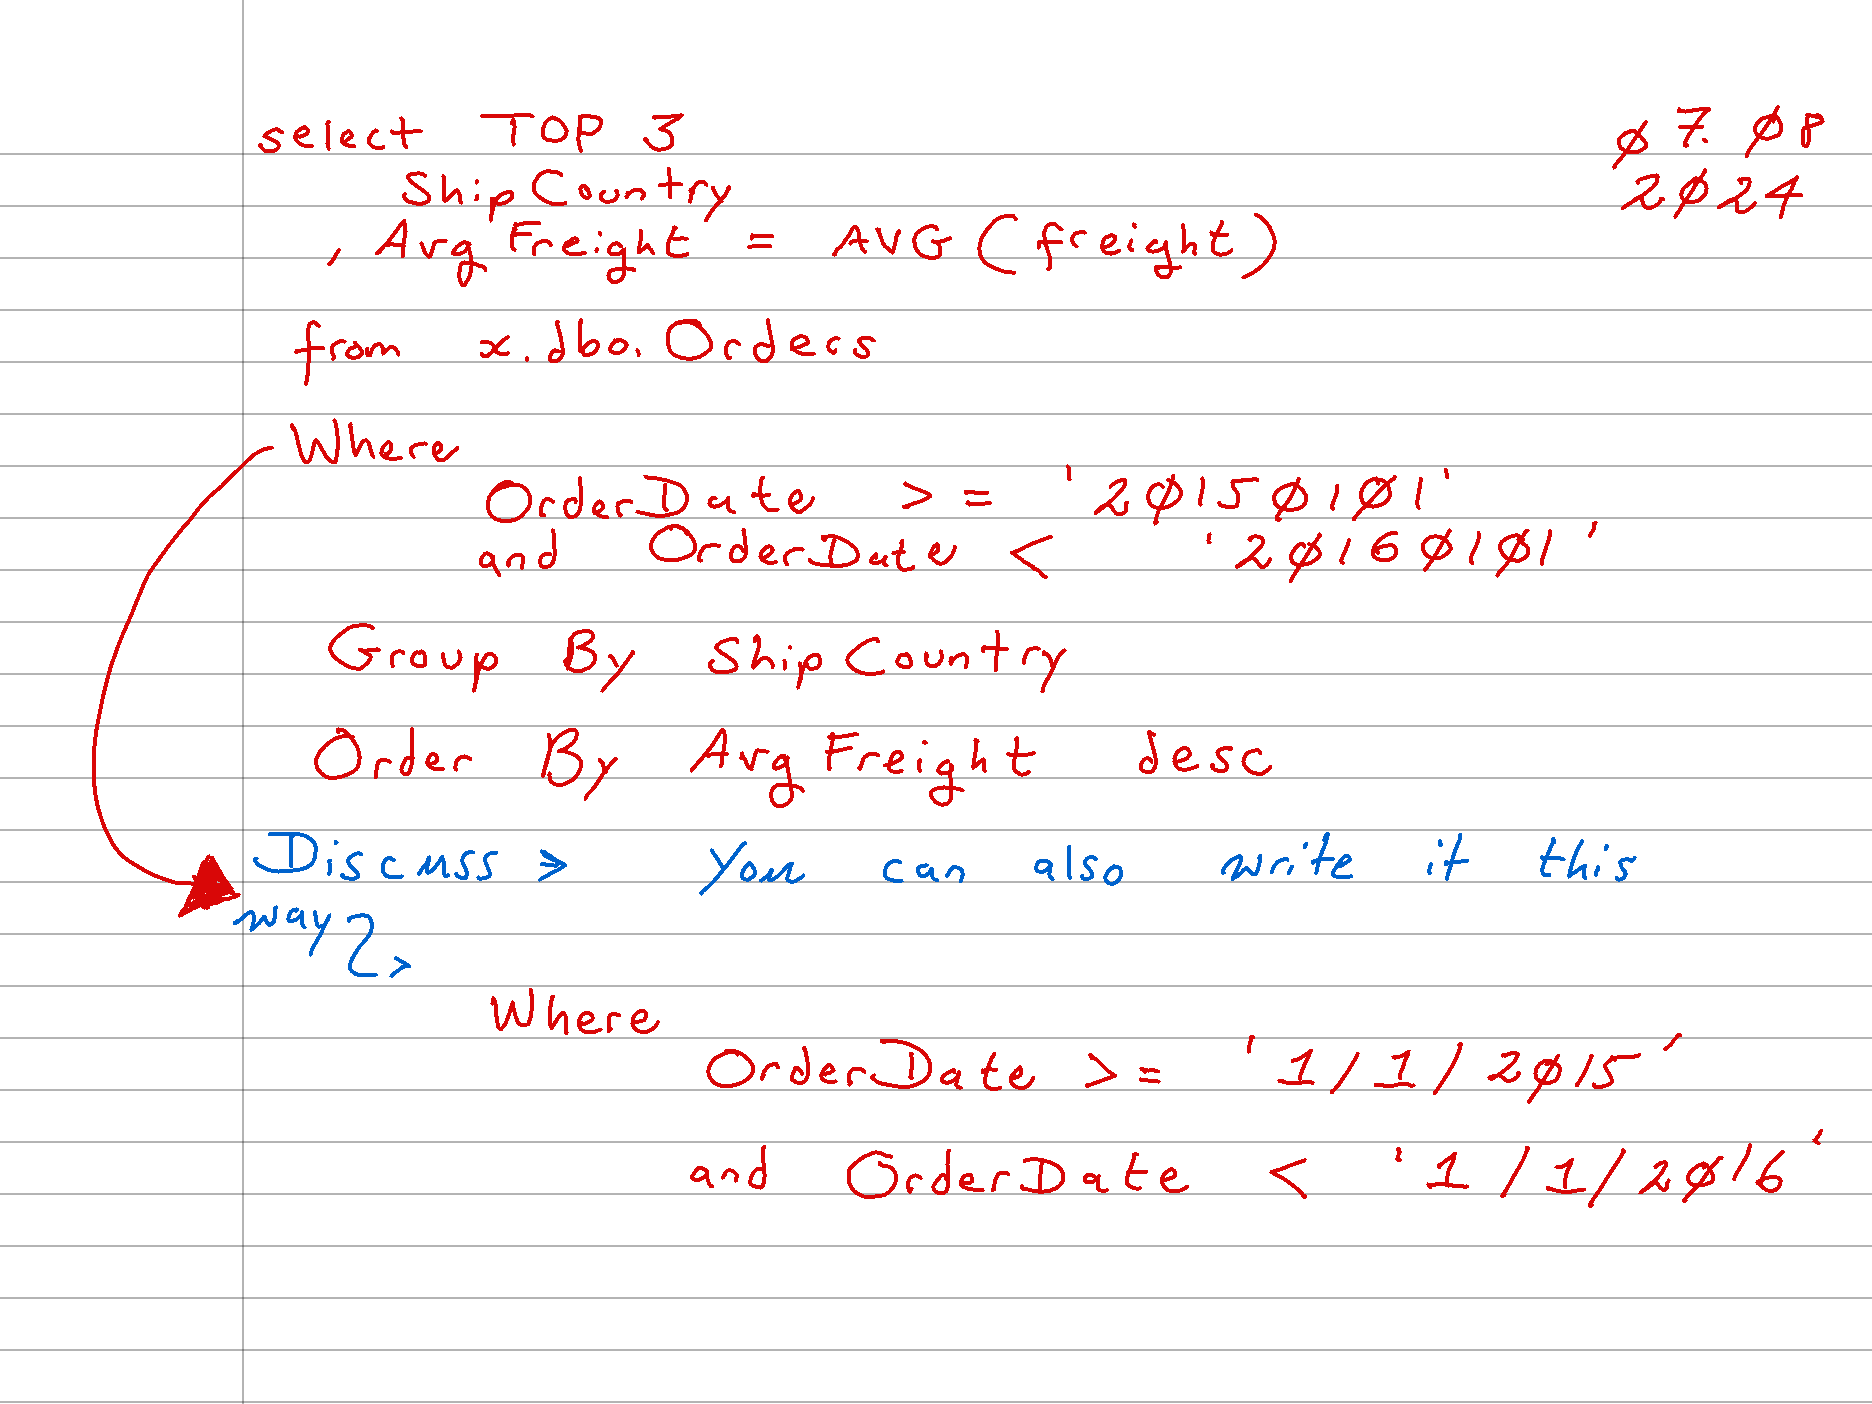 select TOP 3
Ø7.Ø8
2Ø24
ShipCountry
, AvgFreight = AVG(freight)
from x.dbo.Orders
Where
OrderDate >= '2Ø15Ø1Ø1'
and OrderDate < '2Ø16Ø1Ø1'
Group By ShipCountry
Order By AvgFreight desc
Discuss > You can also write it this
way >
Where
OrderDate >= '1/1/2Ø15'
and OrderDate < '1/1/2Ø16'